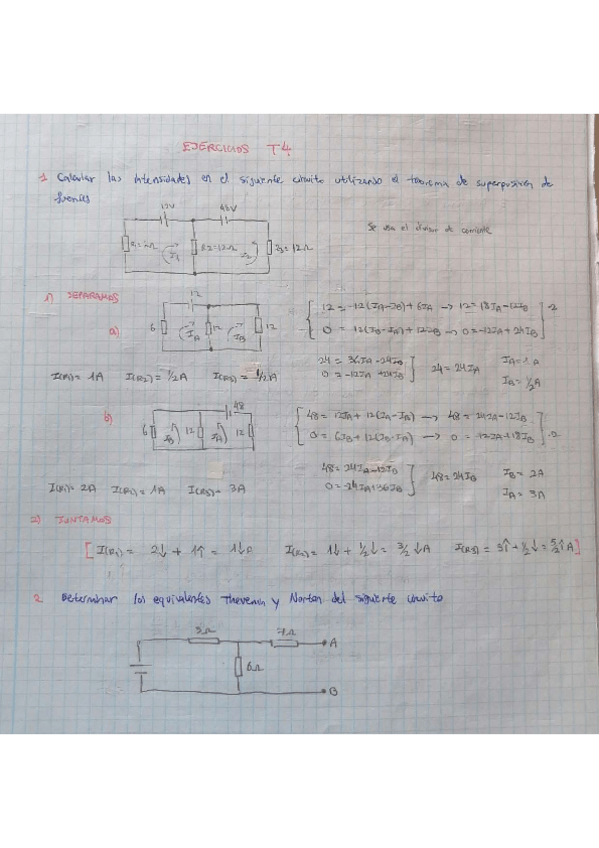 EJERCICIOS T4
1 Calcular las intensidades en el siguiente circuito utilizando el teorema de superposición de
fuentes
12V 48V
R2=12Ω =12Ω
Se usa el divisor de corriente
1) SEPARAMOS
a) 6 12 12 12 IA IB
12 = 12(IA-IB) + 6IA → 12 = 18IA - 12IB
0 = 12(IB-IA) + 12IB → 0 = -12IA + 24IB
·2
24 = 36IA - 24IB
0 = -12IA + 24IB
24 = 24IA
IA = 1A
IB = 1/2A
I(R1) = 1A I(R2) = 1/2A I(R3) = 1/2A
b) 48 6 12 12 IB IA
48 = 12IA + 12(IA-IB) → 48 = 24IA - 12IB
0 = 6IB + 12(IB-IA) → 0 = -12IA + 18IB
·2
48 = 24IA - 12IB
0 = -24IA + 36IB
48 = 24IB
IB = 2A
IA = 3A
I(R1) = 2A I(R2) = 1A I(R3) = 3A
2) JUNTAMOS
[I(R1) = 2↓ + 1↑ = 1↓A I(R2) = 1↓ + 1/2↓ = 3/2↓A I(R3) = 3↑ + 1/2↓ = 5/2↑A]
2 Determinar los equivalentes Thevenin y Norton del siguiente circuito
3Ω 7Ω A
6Ω
B